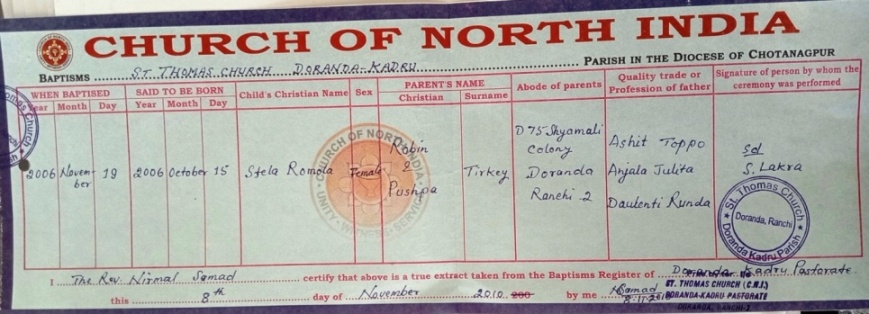 CHURCH OF NORTH INDIA
BAPTISMS ST. THOMAS CHURCH DORANDA-KADRU PARISH IN THE DIOCESE OF CHOTANAGPUR
WHEN BAPTISED SAID TO BE BORN Child's Christian Name Sex PARENT'S NAME Abode of parents Quality trade or Profession of father Signature of person by whom the ceremony was performed
Year Month Day Year Month Day Christian Surname
2006 November 19 2006 October 15 Stela Romola Female Robin & Pushpa Tirkey D 75 Shyamali Colony Doranda Ranchi-2 Ashit Toppo Anjala Julita Daulenti Runda Sd S. Lakra
CHURCH OF NORTH INDIA
UNITY WITNESS SERVICE
St. Thomas Church
Doranda, Ranchi
Doranda Kadru Parish
I The Rev. Nirmal Samad certify that above is a true extract taken from the Baptisms Register of Doranda Kadru Pastorate
this 8th day of November 2010 200 by me NSamad
ST. THOMAS CHURCH (C.N.I.)
DORANDA-KADRU PASTORATE
DORANDA, RANCHI-2